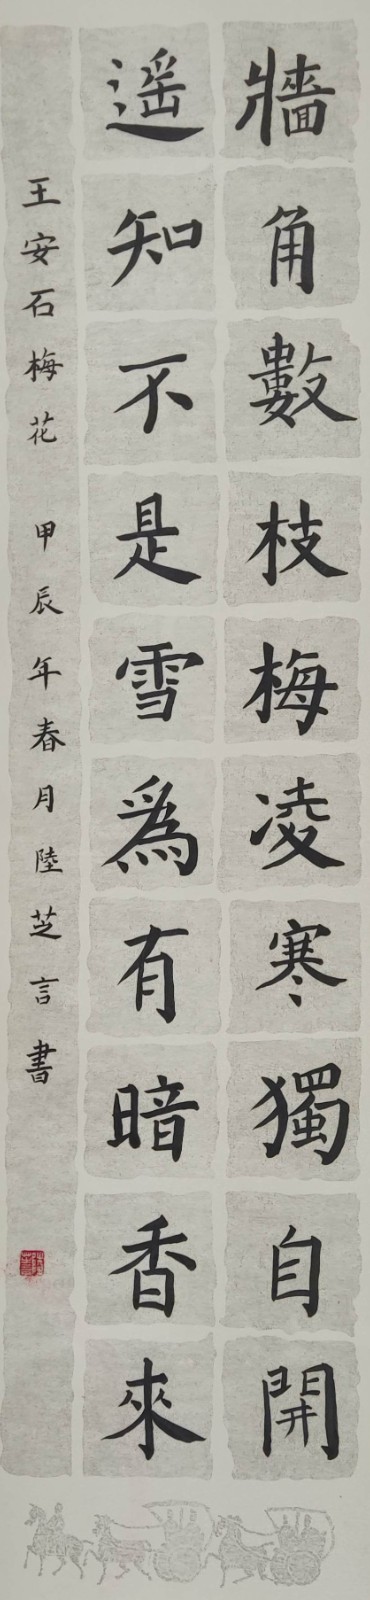 牆角數枝梅凌寒獨自開
遥知不是雪爲有暗香來
王安石梅花 甲辰年春月陸芝言書